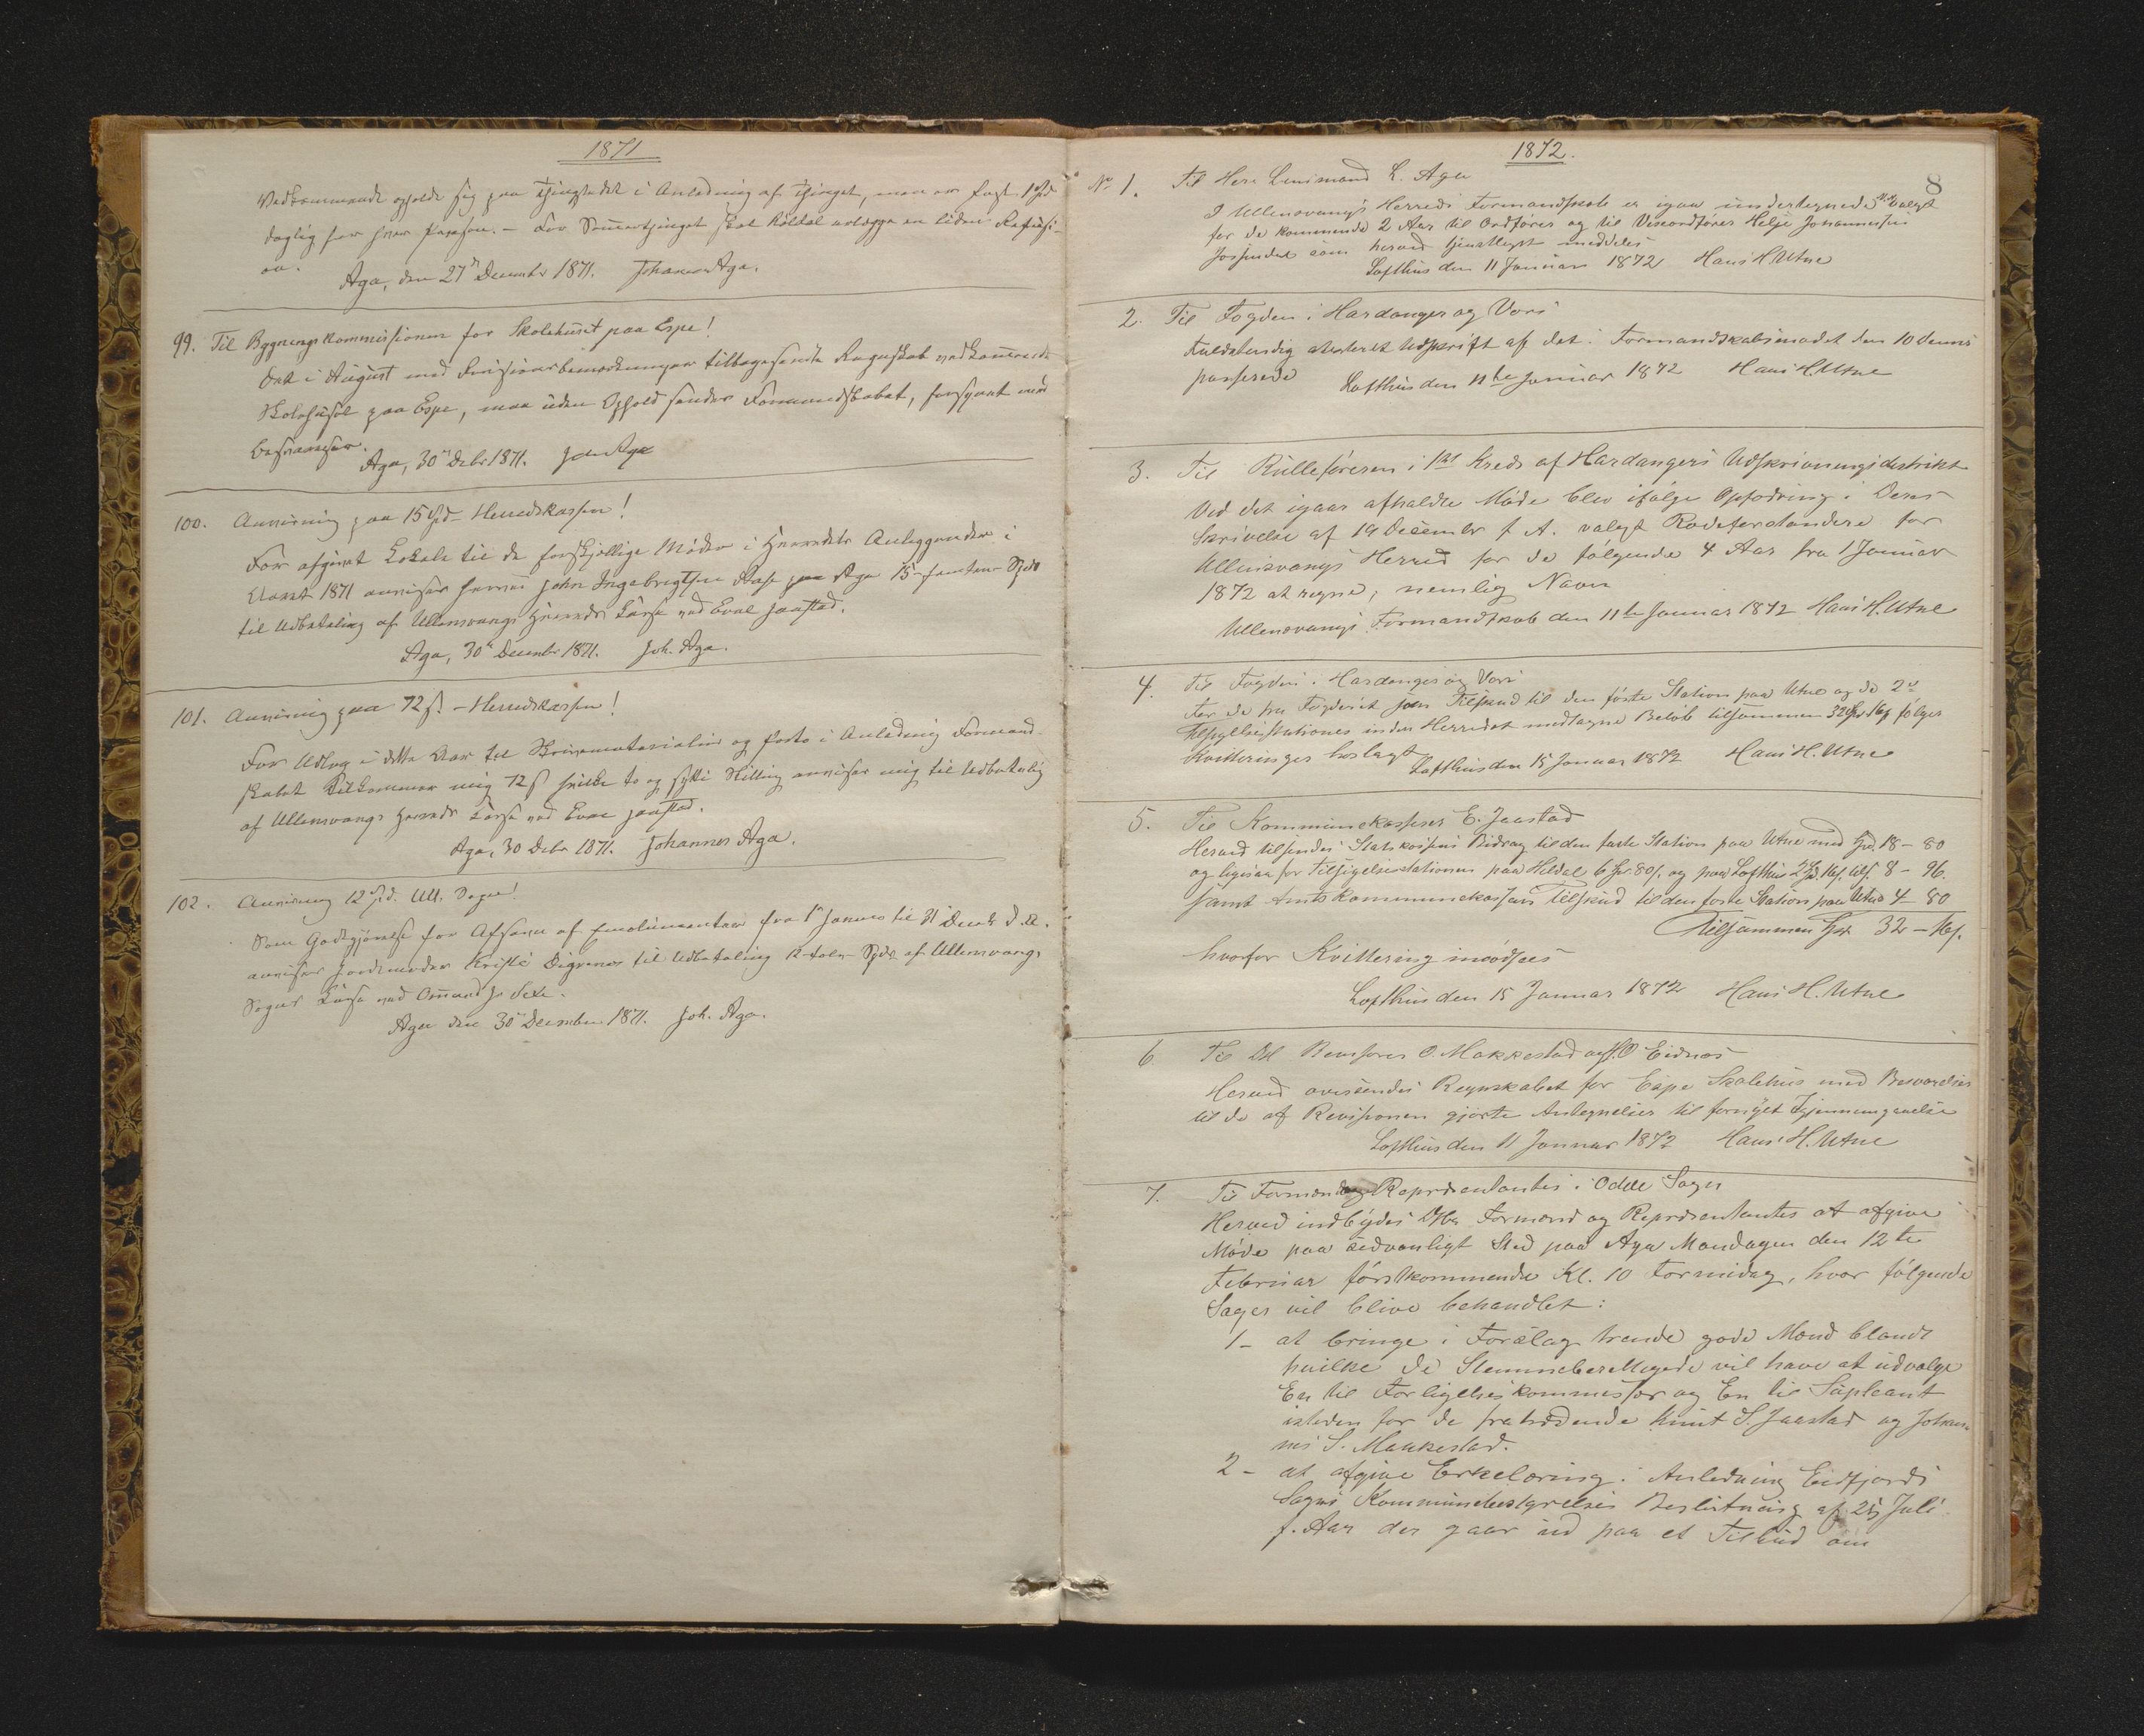 1871
Vedkommende opholde sig paa Thingstedet i Anledning af Thinget, men en fast 1 Spd
daglig for hver Person. – For Sommerthinget skal Röldal erlægge en liden Refusi-
on.
Aga, den 27de Decembr 1871. Johannes Aga.
99. Til Bygningskommissionen for Skolehuset paa Espe!
Det i August med Revisionsbemærkninger tilbagesendte Regnskab vedkommende
Skolehuset paa Espe, maa uden Ophold sendes Formandskabet, forsynet med
Besvarelser.
Aga, 30te Debr 1871. Joh Aga
100. Anvisning paa 15 Spd – Herredskassen!
For afgivet Lokale til de forskjellige Möder i Herredets Anliggender i
Aaret 1871 anvises herved John Ingebrigtsen Aga 15 – femten – Spdr
til Udbetaling af Ullensvangs Herreds Kasse ved Eval Jaastad.
Aga, 30te Decembr 1871. Joh. Aga.
101. Anvisning paa 72 ß. – Herredskassen!
For Udlæg i dette Aar til Skrivematerialier og Porto i Anledning Formand-
skabet tilkommer mig 72 ß hvilke to og sytti Skilling anvises mig til Udbetaling
af Ullensvangs Herreds Kasse ved Eval Jaastad.
Aga, 30 Debr 1871. Johannes Aga.
102. Anvisning 12 Spd. Ull. Sogn!
Som Godtgjørelse for Afsavn af Emolumenter fra 1te Januar til 31 Decbr d. A.
anvises Jordemoder Kristi Digranes til Udbetaling 12 – tolv – Spdr af Ullensvangs
Sogns Kasse ved Omund J. Sexe.
Aga den 30te December 1871. Joh. Aga.
1872.
8
No 1. Til Herr Lensmand L. Aga
I Ullensvangs Herreds Formandskab er igaar undertegnede valgt
for de kommende 2 Aar til Ordförer og til Viceordförer Helje Johannessen
som herved tjenstligst meddeles
Lofthus den 11 Januar 1872 Hans H. Utne
2. Til Fogden i Hardanger og Vors
Fuldstændig attesteret Udskrift af det i Formandskabsmödet den 10 dennes
passerede Lofthus den 11te Januar 1872 Hans H. Utne
3. Til Rulleföreren i 1ste Kreds af Hardangers Udskrivningsdistrikt
Ved det igaar afholdte Möde blev ifölge Opfodring i Deres
Skrivelse af 19 December f. A. valgt Rodeforstandere for
Ullensvangs Herred for de fölgende 4 Aar fra 1 Januar
1872 at regne, nemlig Navn
Ullensvangs Formandskab den 11te Januar 1872 Hans H. Utne
4. Til Fogden i Hardanger og Vors
For de fra Fogderiet som Tilskud til den förste Station paa Utne og de 2de
Tilsigelsesstationer inden Herredet modtagne Belöb tilsammen 32 Spd 16 ß fölger
Kvitteringer hoslagt Lofthus den 15 Januar 1872 Hans H. Utne
5. Til Kommunekasserer E. Jaastad
Herved tilsendes Statskassens Bidrag til den faste Station paa Utne med Spd. 18 – 80
og ligesaa for Tilsigelsesstationen paa Hildal 6 Spd. 80 ß. og paa Lofthus 2 Spd. 16 ß. tils. 8 – 96.
samt Amtskommunekassens Tilskud til den faste Station paa Utne 4 – 80
Tilsammen Spd 32 – 16 ß.
hvorfor Kvittering imödsees
Lofthus den 15 Januar 1872 Hans H. Utne
6. Til DHl Revisorer O. Makkestad og O Eidnes
Herved oversendes Regnskabet for Espe Skolehus med Besvarelser
til de af Revisionen gjorte Antegnelser til fornyet Gjennemgaaelse
Lofthus den 11 Januar 1872 Hans H. Utne
7. Til Formænd og Repræsentanter i Odde Sogn
Herved indbydes DHr Formænd og Repræsentanter at afgive
Möde paa sedvanligt Sted paa Aga Mandagen den 12te
Februar förstkommende Kl. 10 Formidag, hvor fölgende
Sager vil blive behandlet:
1 – at bringe i Forslag trende gode Mænd blandt
hvilke de Stemmeberettigede vil have at udvælge
En til Forligelseskommissær og En til Supleant
isteden for de fratrædende Knut S. Jaastad og Johan-
nes S. Maakestad.
2 – at afgive Erkelæring i Anledning Eidfjords
Sogns Kommunebestyrelses Beslutning af 25 Juli
f. Aar der gaar ud paa et Tilbud om